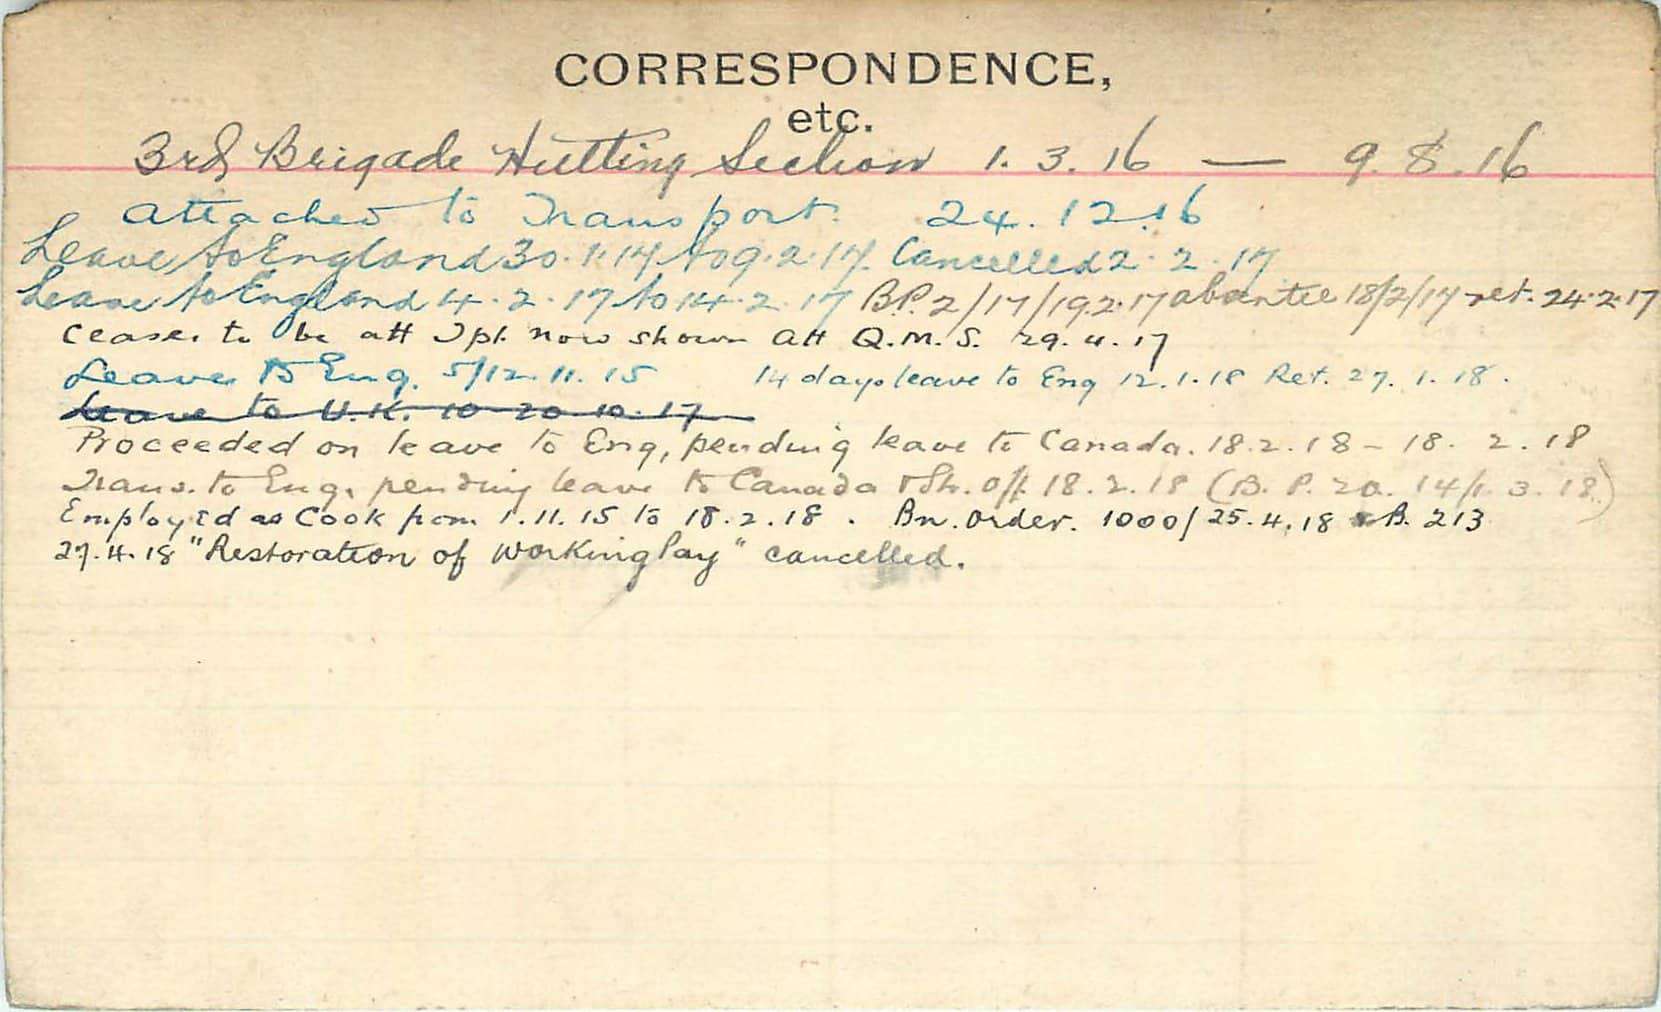 CORRESPONDENCE,
etc.
3rd Brigade Hutting Section 1. 3. 16 — 9. 8. 16
Attached to Transport. 24. 12. 16
Leave to England 30.1.17 to 9.2.17. Cancelled 2. 2. 17
Leave to England 4.2.17 to 14.2.17 B.P. 2/17/19.2.17 absentee 18/2/17 ret. 24.2.17
Ceases to be att Tpt. now shown att Q.M.S. 29.4.17
Leave to Eng. 5/12.11.15 14 days leave to Eng 12.1.18 Ret. 27.1.18.
Leave to U.K. 10-20.10.17
Proceeded on leave to Eng, pending leave to Canada. 18.2.18 - 18. 2. 18
Trans. to Eng, pending leave to Canada & St. off 18.2.18 (B.P. 20. 14/1.3.18)
Employed as Cook from 1.11.15 to 18.2.18. Bn. Order. 1000/25.4.18 B. 213
27.4.18 "Restoration of Working Pay" cancelled.